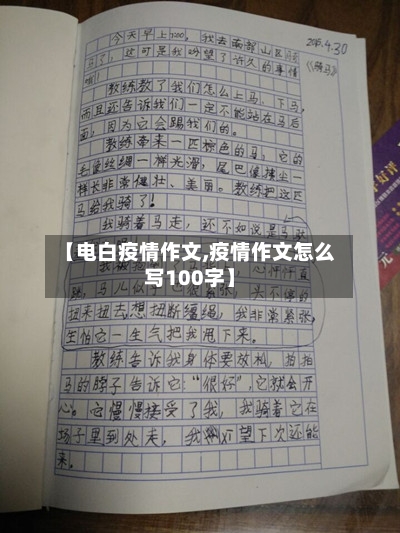 今天早上7:00,我去南部山区骑
马了,这可是我盼望了许久的事情
啦!
2015.4.30
《骑马》
教练教了我们怎么上马、下马,
而且还告诉我们一定不能站在马后
面,因为它会踢我们的。
教练牵来一匹棕色的马,它的
毛像丝绸一样光滑,尾巴像
一样长非常健壮、美丽。教练把这匹
马给我骑了!
我骑着马走,还不如说是马
【电白疫情作文,疫情作文怎么
写100字】
心怦怦直
跳,马儿似乎也很紧张,头不停的
扭来扭去想扭断缰绳,我非常紧张,
生怕它一生气把我甩下来。
教练告诉我身体要放松,拍拍
马的脖子告诉它:“很好”,它就会开
心。它慢慢接受了我,我骑着它在
场子里到处走,我 望下次还能
来。
好评
元